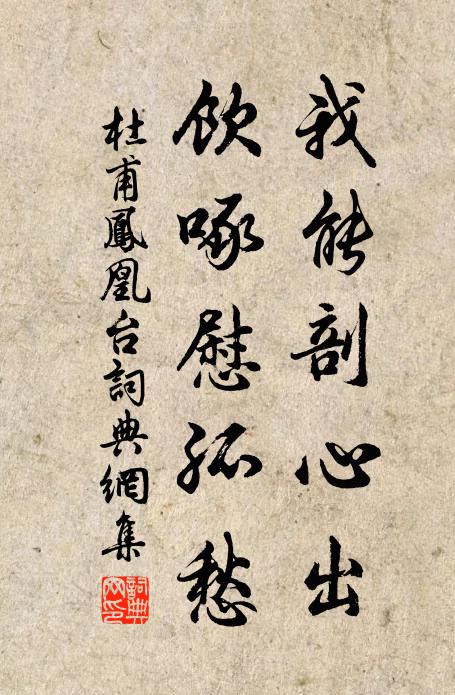 我能剖心出
飲啄慰孤愁
杜甫鳳凰台詞典網集
詞典网印